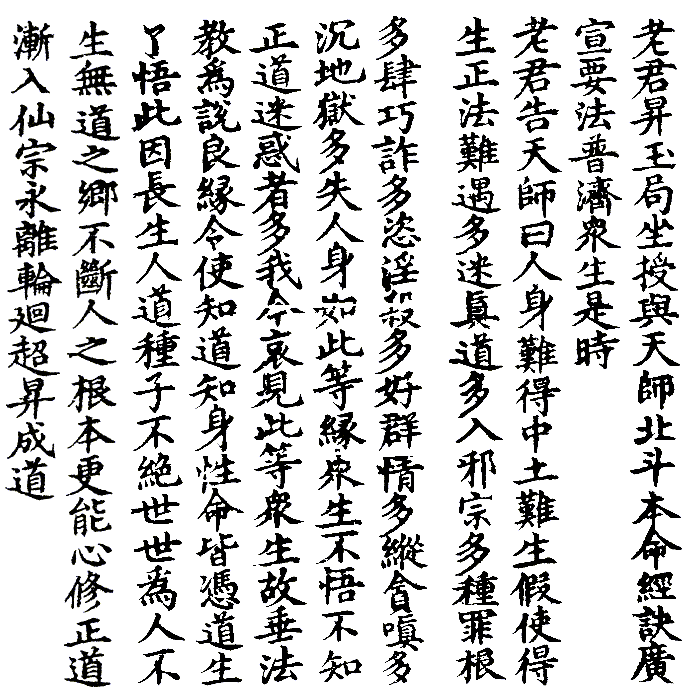 老君昇玉局坐授與天師北斗本命經訣廣
宣要法普濟眾生是時
老君告天師曰人身難得中土難生假使得
生正法難遇多迷真道多入邪宗多種罪根
多肆巧詐多恣淫殺多好群情多縱貪嗔多
沉地獄多失人身如此等緣眾生不悟不知
正道迷惑者多我今哀見此等眾生故垂法
教為說良緣令使知道知身性命皆憑道生
了悟此因長生人道種子不絕世世為人不
生無道之鄉不斷人之根本更能心修正道
漸入仙宗永離輪迴超昇成道